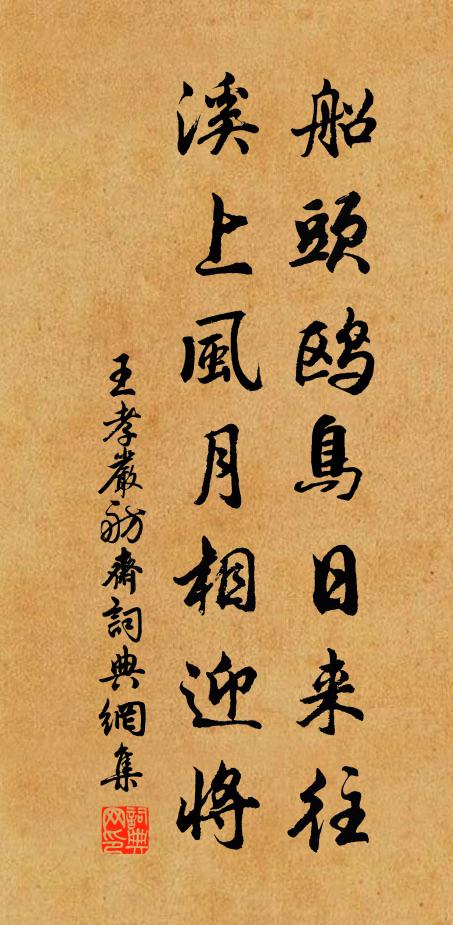 船頭鷗鳥日来往
溪上風月相迎將
王孝嚴舫齋詞典網集
詞典網印